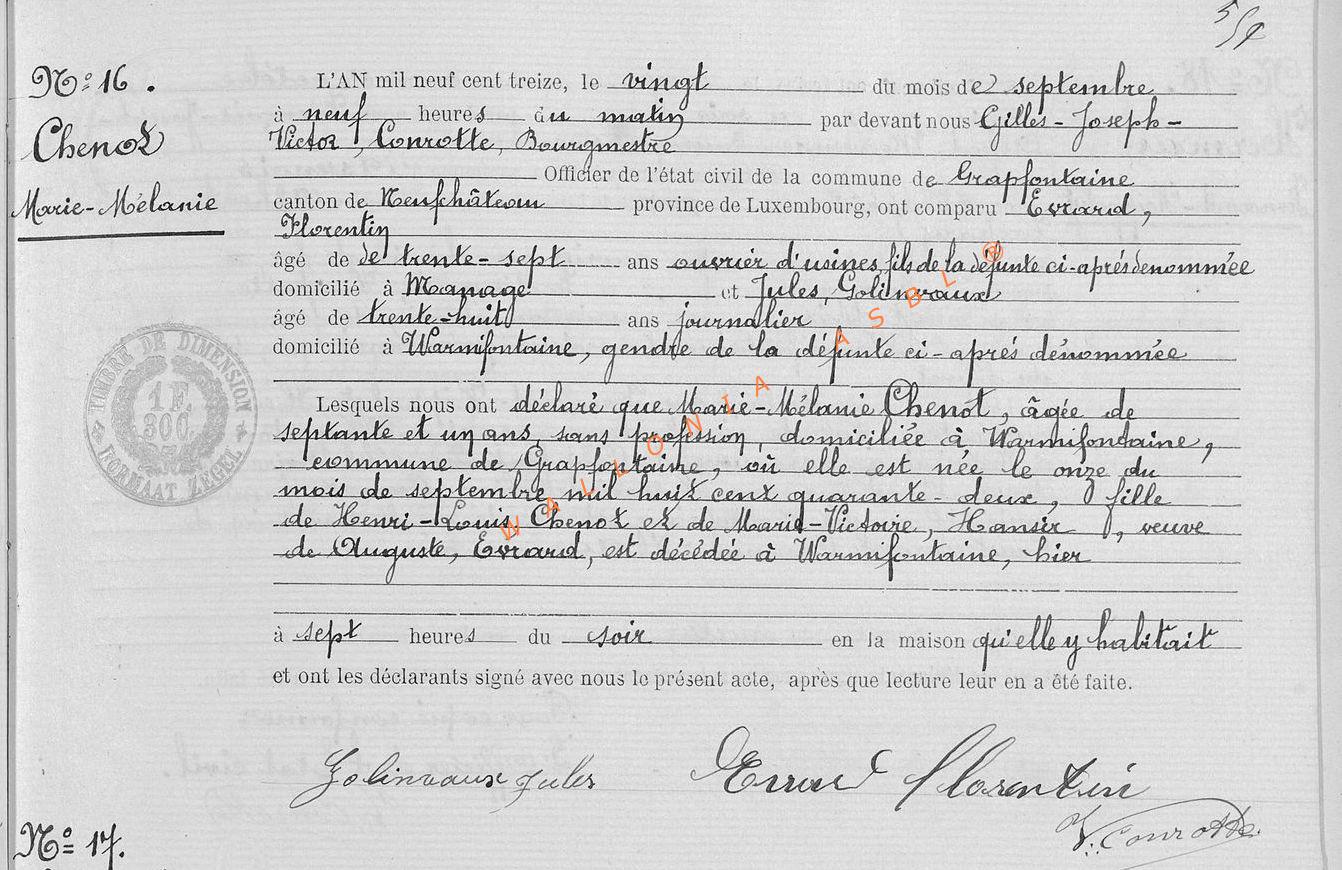 5/4
N° 16.
Chenot
Marie-Mélanie
L'AN mil neuf cent treize, le vingt du mois de septembre
à neuf heures du matin par devant nous Gilles-Joseph-
Victor, Conrotte, Bourgmestre
Officier de l'état civil de la commune de Grapfontaine
canton de Neufchâteau province de Luxembourg, ont comparu Evrard,
Florentin
âgé de de trente-sept ans ouvrier d'usines, fils de la défunte ci-après dénommée
domicilié à Manage et Jules, Golinvaux
âgé de trente-huit ans journalier
domicilié à Warmifontaine, gendre de la défunte ci-après dénommée
Lesquels nous ont déclaré que Marie-Mélanie Chenot, âgée de
septante et un ans, sans profession, domiciliée à Warmifontaine,
commune de Grapfontaine, où elle est née le onze du
mois de septembre mil huit cent quarante-deux, fille
de Henri-Louis Chenot et de Marie-Victoire, Hansir, veuve
de Auguste, Evrard, est décédée à Warmifontaine, hier
à sept heures du soir en la maison qu'elle y habitait
et ont les déclarants signé avec nous le présent acte, après que lecture leur en a été faite.
Golinvaux Jules
Evrard Florentin
V. Conrotte
N° 17.
TIMBRE DE DIMENSION
1 F.
300
FORMAAT ZEGEL
WALLONIA ASBL @